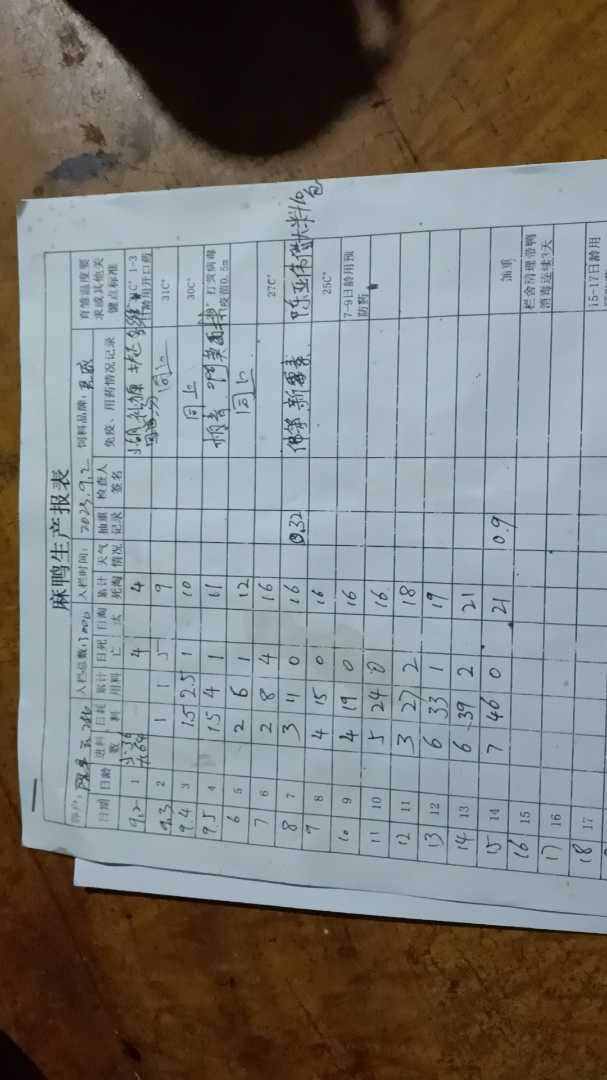 麻鸭生产报表
养户: 入栏总数: 3000 入栏时间: 2023.9.2 饲料品牌:
日期 日龄 进料数 日耗料 累计用料 日死亡 日淘汰 累计死淘 天气情况 抽重记录 检查人签名 免疫、用药情况记录 育雏温度要求或其他关键点标准
9.2 1 4 4 1-3日龄用开口药
9.3 2 1 1 5 9 同上 31C°
9.4 3 1.5 2.5 1 10 同上 30C°
9.5 4 1.5 4 1 11 打黄病毒疫苗0.5m
6 5 2 6 1 12 同上
7 6 2 8 4 16 27C°
8 7 3 11 0 16 0.32
9 8 4 15 0 16 25C°
10 9 4 19 0 16 7-9日龄用预防药
11 10 5 24 0 16
12 11 3 27 2 18
13 12 6 33 1 19
14 13 6 39 2 21
15 14 7 46 0 21 0.9 抽重
16 15 栏舍清理带鸭消毒连续3天
17 16
18 17 15-17日龄用